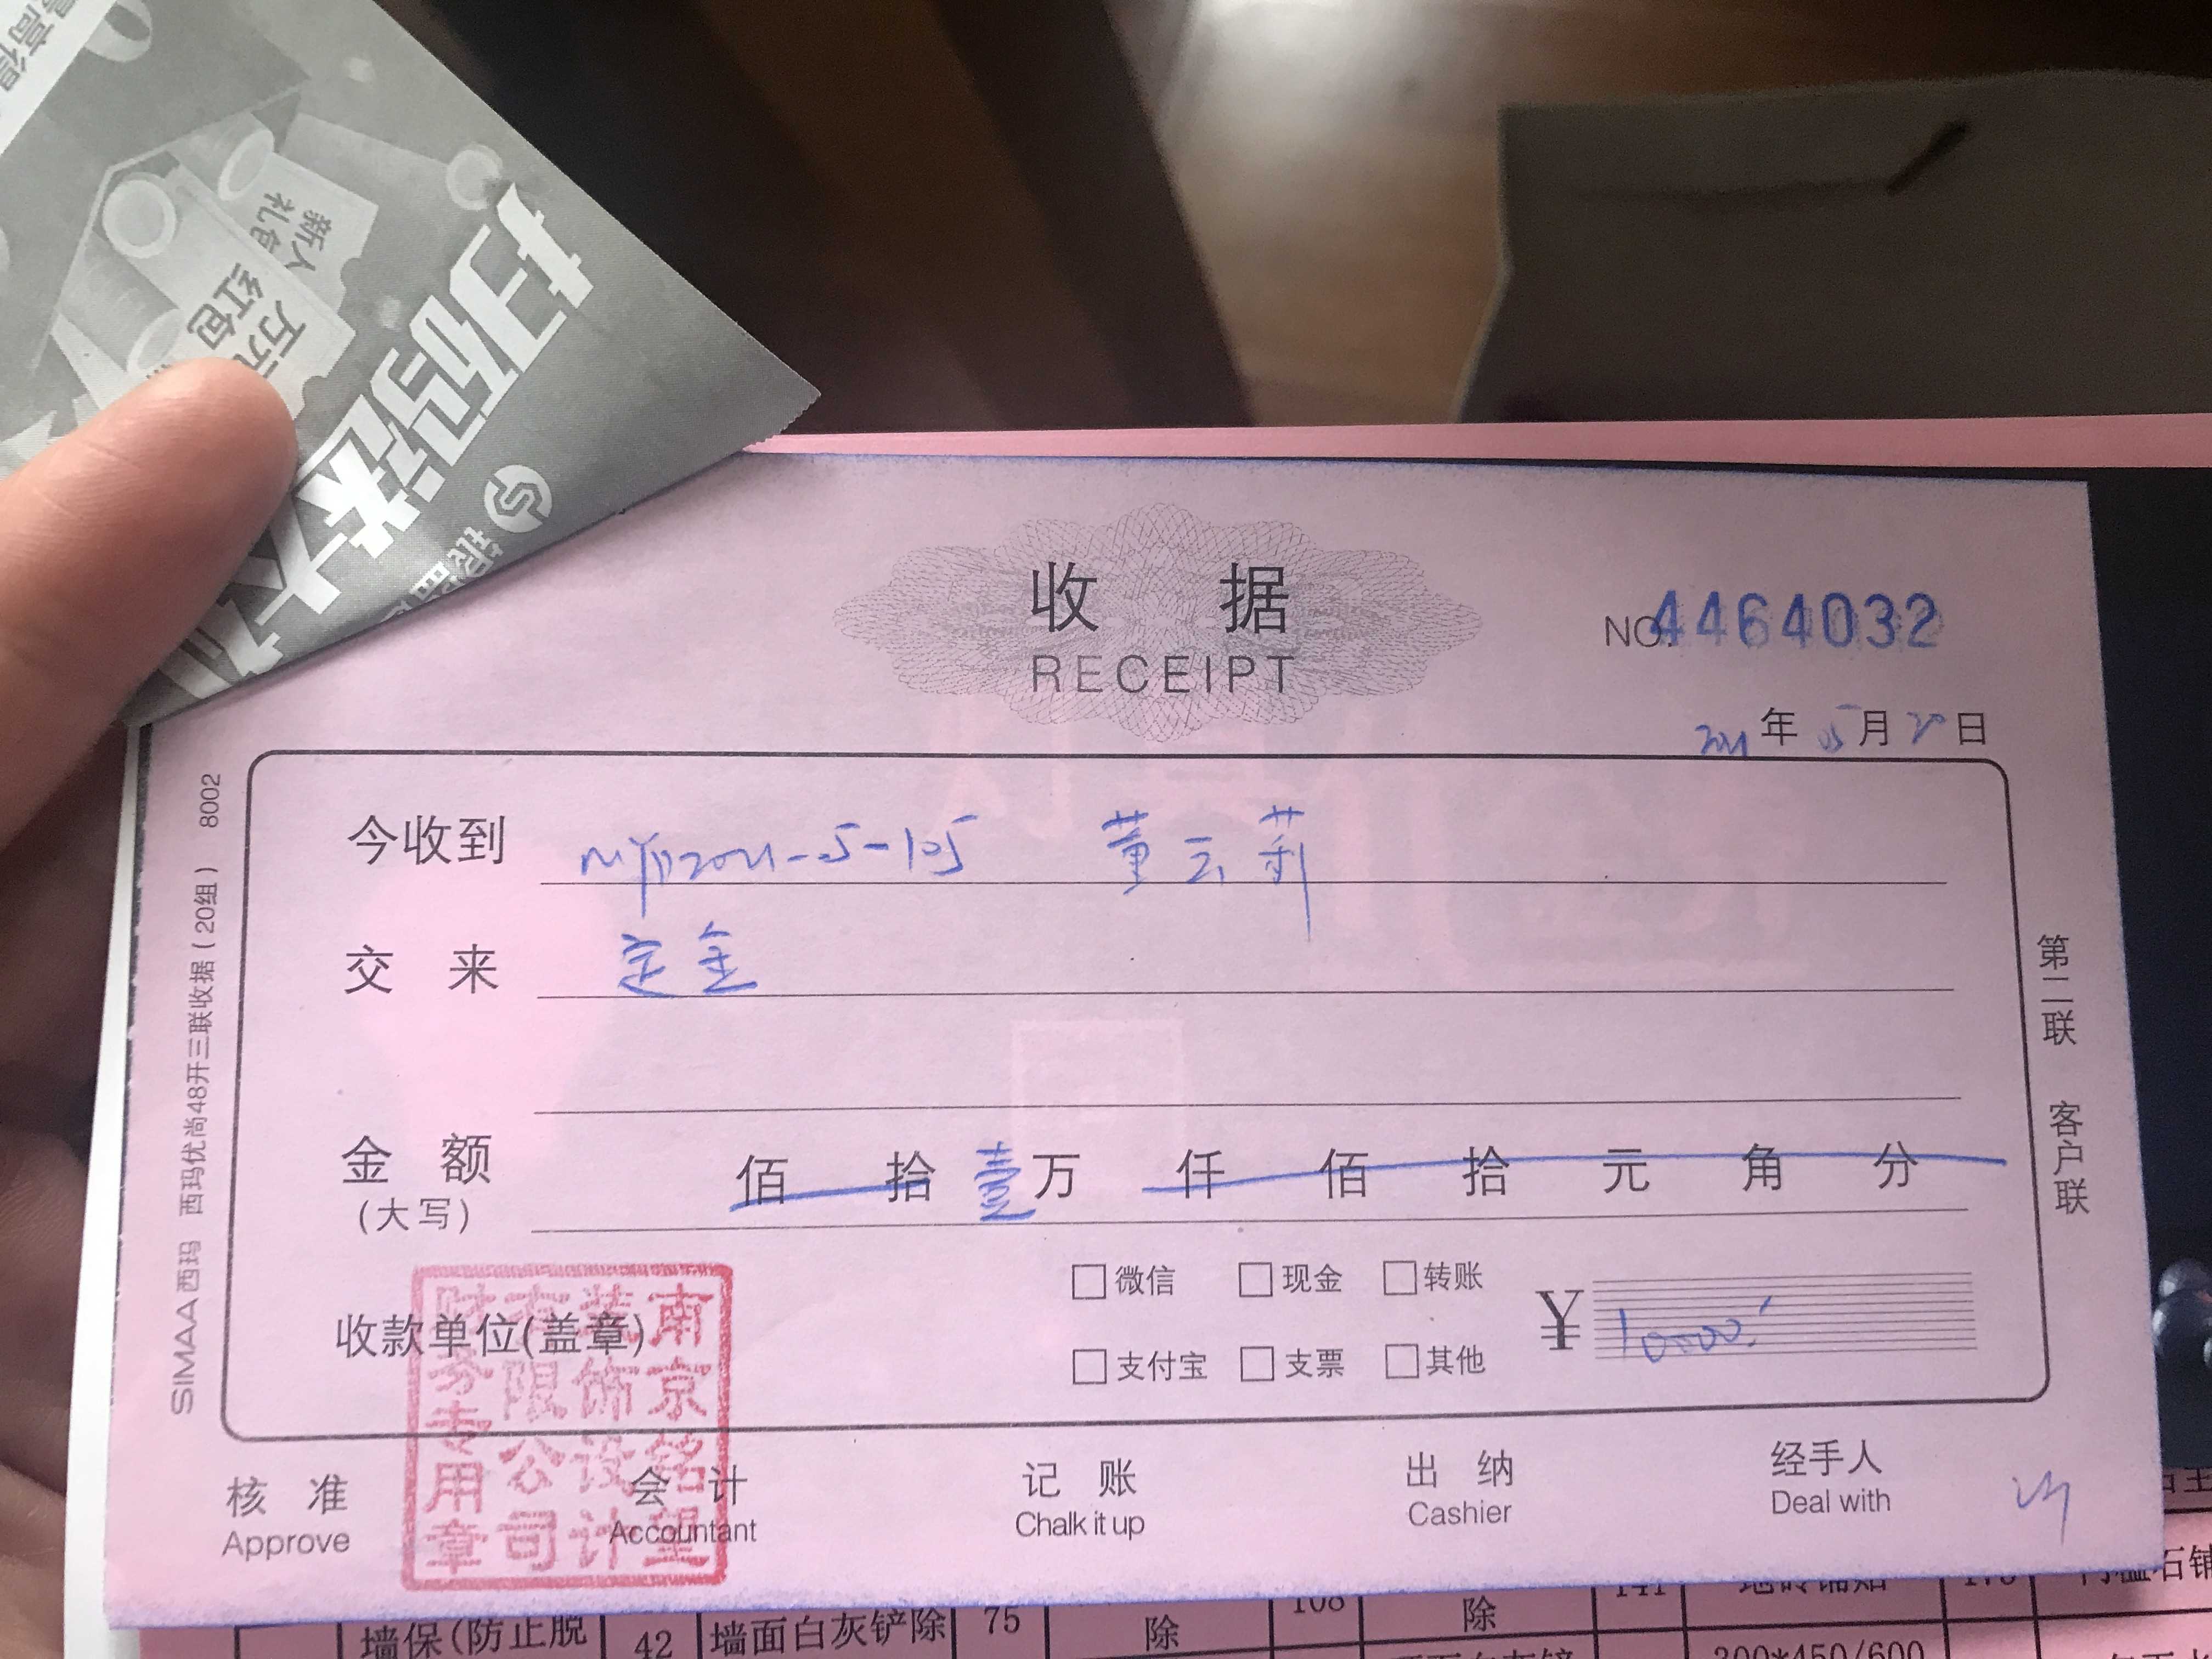 新人
礼包
万元
红包
扫码送大礼
收 据
RECEIPT
NO.4464032
2021年05月20日
今收到 2021-5-105 董云莉
交 来 定金
金 额 佰 拾 壹万 仟 佰 拾 元 角 分
(大写)
收款单位(盖章)
□微信 □现金 □转账
□支付宝 □支票 □其他
¥ 10000.
南京铭望装饰设计有限公司财务专用章
核 准 会 计 记 账 出 纳 经手人
Approve Accountant Chalk it up Cashier Deal with
SIMAA西玛 西玛优尚48开三联收据(20组) 8002
第二联 客户联
墙保(防止脱 42 墙面白灰铲除 75 除 108 除 141 地砖铺贴
300*450/600